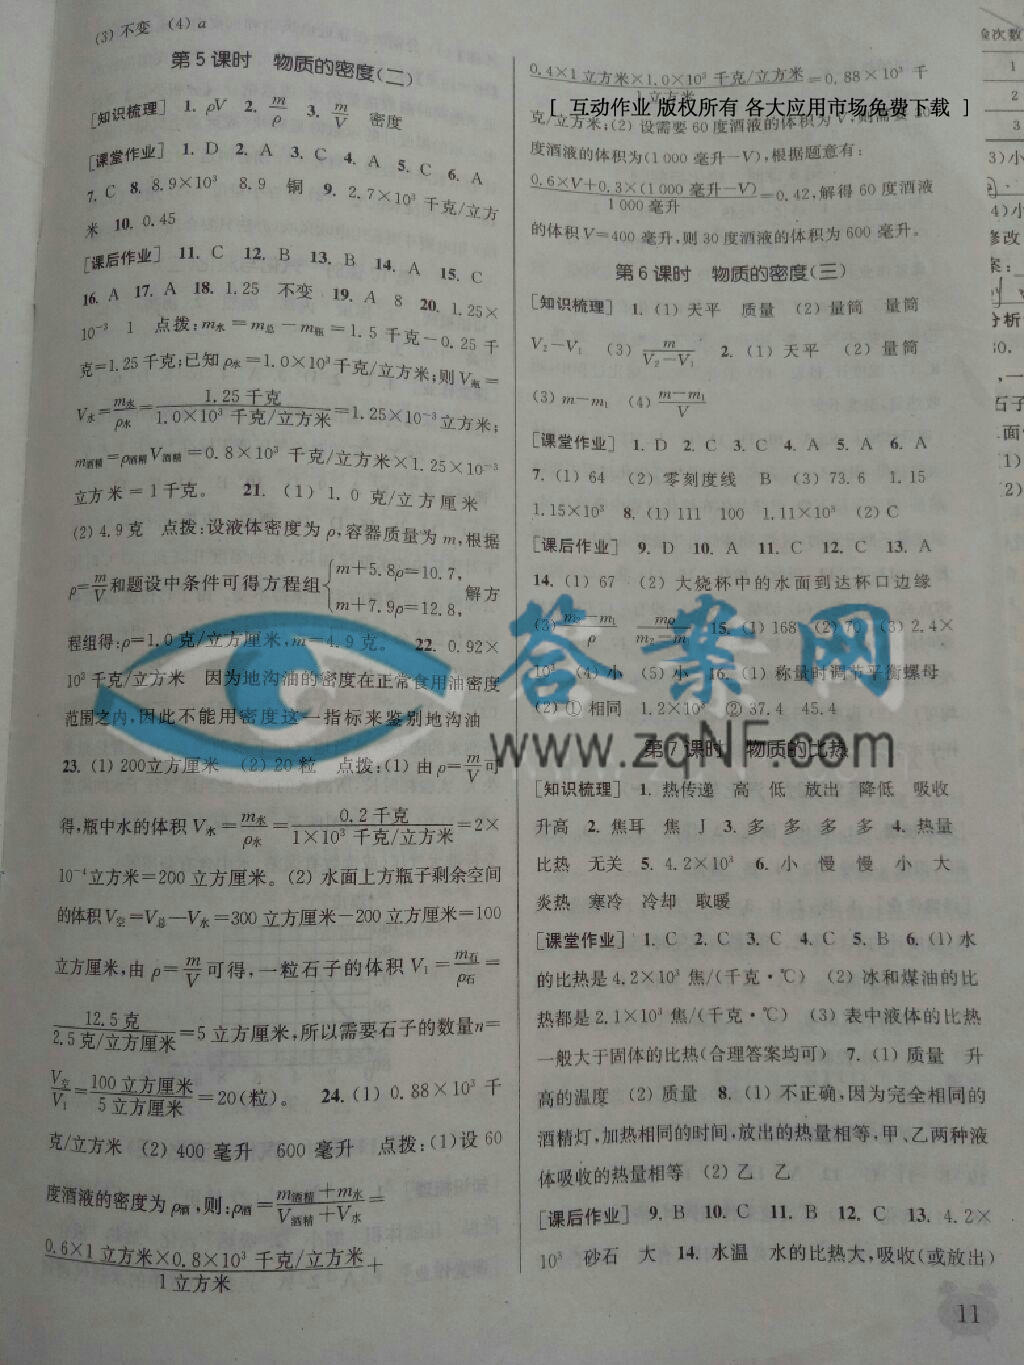 (3) 不变 (4) a
第5课时 物质的密度(二)
[知识梳理] 1. ρV 2. m/ρ 3. m/V 密度
[课堂作业] 1. D 2. A 3. C 4. A 5. C 6. A
7. C 8. 8.9×10³ 8.9 铜 9. 2.7×10³ 千克/立方
米 10. 0.45
[课后作业] 11. C 12. B 13. B 14. A 15. C
16. A 17. A 18. 1.25 不变 19. A 8 20. 1.25×
10⁻³ 1 点拨:m水=m总-m瓶=1.5千克-0.25千
克=1.25千克;已知ρ水=1.0×10³千克/立方米;则V瓶=
V水=m水/ρ水=1.25千克/1.0×10³ 千克/立方米=1.25×10⁻³立方米;
m酒精=ρ酒精V酒精=0.8×10³ 千克/立方米×1.25×10⁻³
立方米=1千克。 21. (1) 1.0 克/立方厘米
(2) 4.9克 点拨:设液体密度为ρ,容器质量为m,根据
ρ=m/V和题设中条件可得方程组{m+5.8ρ=10.7, m+7.9ρ=12.8,解方
程组得:ρ=1.0克/立方厘米,m=4.9克。 22. 0.92×
10³千克/立方米 因为地沟油的密度在正常食用油密度
范围之内,因此不能用密度这一指标来鉴别地沟油
23. (1) 200立方厘米 (2) 20粒 点拨:(1) 由ρ=m/V可
得,瓶中水的体积V水=m水/ρ水=0.2千克/1×10³ 千克/立方米=2×
10⁻⁴立方米=200立方厘米。(2) 水面上方瓶子剩余空间
的体积V空=V总-V水=300立方厘米-200立方厘米=100
立方厘米,由ρ=m/V可得,一粒石子的体积V₁=m石/ρ石=
12.5克/2.5克/立方厘米=5立方厘米,所以需要石子的数量n=
V空/V₁=100立方厘米/5立方厘米=20(粒)。 24. (1) 0.88×10³ 千
克/立方米 (2) 400 毫升 600 毫升 点拨:(1)设60
度酒液的密度为ρ酒,则:ρ酒=m酒精+m水/V酒精+V水=
0.6×1立方米×0.8×10³ 千克/立方米+/1立方米
0.4×1立方米×1.0×10³ 千克/立方米/1立方米=0.88×10³ 千
[ 互动作业 版权所有 各大应用市场免费下载 ]
克/立方米;(2) 设需要60度酒液的体积为V,则需要30
度酒液的体积为(1 000 毫升-V),根据题意有:
0.6×V+0.3×(1 000毫升-V)/1 000毫升=0.42,解得60度酒液
的体积V=400毫升,则30度酒液的体积为600毫升。
第6课时 物质的密度(三)
[知识梳理] 1. (1) 天平 质量 (2) 量筒 量筒
V₂-V₁ (3) m/V₂-V₁ 2. (1) 天平 (2) 量筒
(3) m-m₁ (4) m-m₁/V
[课堂作业] 1. D 2. C 3. C 4. A 5. A 6. A
7. (1) 64 (2) 零刻度线 B (3) 73.6 1.15
1.15×10³ 8. (1) 111 100 1.11×10³ (2) C
[课后作业] 9. D 10. A 11. C 12. C 13. A
14. (1) 67 (2) 大烧杯中的水面到达杯口边缘
(3) m₂-m₁/ρ 15. (1) 168 (2) 70 (3) 2.4×
10³ (4) 小 (5) 小 16. (1) 称量时调节平衡螺母
(2) ① 相同 1.2×10³ ② 37.4 45.4
答案网
www.zqNF.com
第7课时 物质的比热
[知识梳理] 1. 热传递 高 低 放出 降低 吸收
升高 2. 焦耳 焦 J 3. 多 多 多 多 4. 热量
比热 无关 5. 4.2×10³ 6. 小 慢 慢 小 大
炎热 寒冷 冷却 取暖
[课堂作业] 1. C 2. C 3. C 4. C 5. B 6. (1) 水
的比热是4.2×10³ 焦/(千克·℃) (2) 冰和煤油的比
热都是2.1×10³焦/(千克·℃) (3) 表中液体的比热
一般大于固体的比热(合理答案均可) 7. (1) 质量 升
高的温度 (2) 质量 8. (1) 不正确,因为完全相同的
酒精灯,加热相同的时间,放出的热量相等,甲、乙两种液
体吸收的热量相等 (2) 乙 乙
[课后作业] 9. B 10. C 11. B 12. C 13. 4.2×
10³ 砂石 大 14. 水温 水的比热大,吸收(或放出)
11